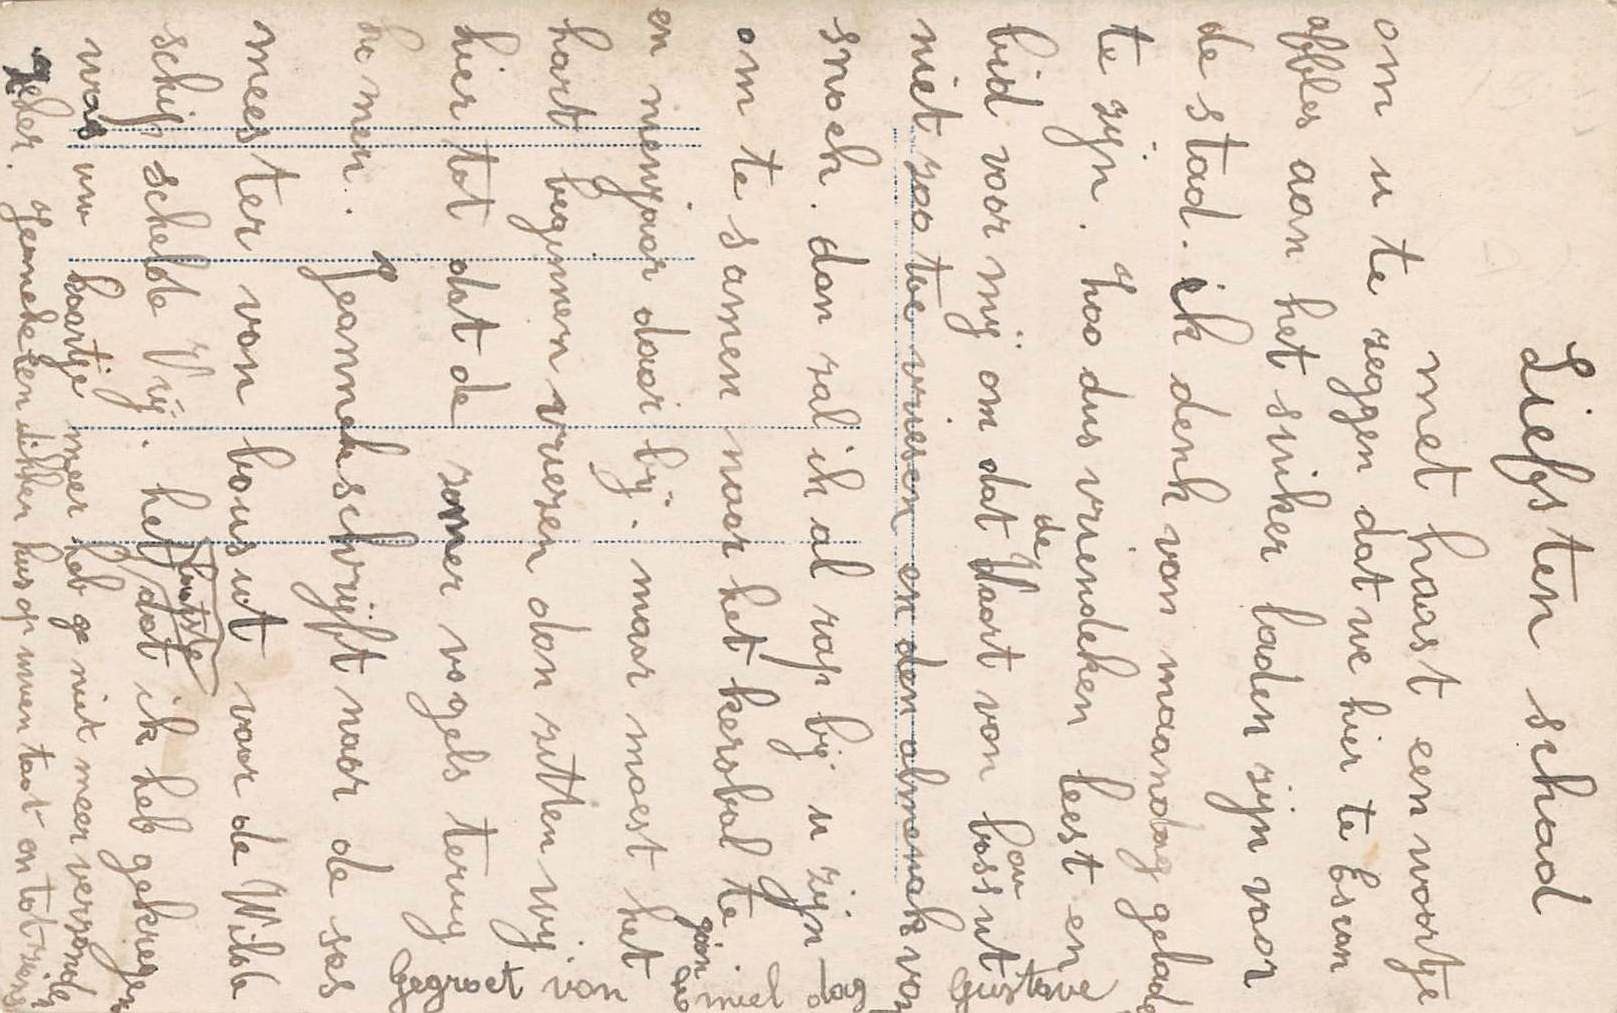 Liefsten schad
met haast een woortje
om u te zeggen dat we hier te Escan
affles aan het suiker laden zijn voor
de stad. ik denk van maandag gelade
te zijn. hoo dus vriendeken leest en
bid voor mij om dat de Vaart van bossut
niet zoo toe vriesen en den almenak van
snoek. dan zal ik al rap bij u zijn
om te samen naar het kersbal te gaan
en menjaar daar bij. maar moest het
hart beginnen vriezen dan zitten wij
hier tot dat de zomer vogels terug
komen. Jeanneke schrijft naar de sas
meester van bousut voor de Wilde
schip schelde Vrij. het kaartje dat ik heb gekregen
was uw kaartje meer heb ge niet meer verzonden
zeker. Jeanneke een dikken kus op uwen taot en tot ziens
Gegroet van Gemiel dag Gustave